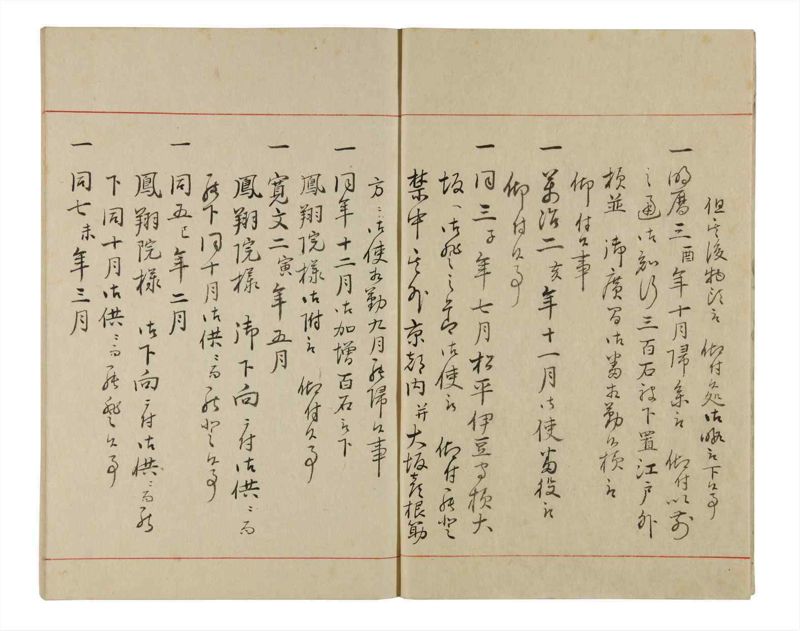 但其後物頭被 仰付候処御暇被下候事
一 明暦三酉年十月帰参被 仰付以前
之通御知行三百石被下置江戸外
様並 御広間御番相勤候様被
仰付候事
一 萬治二亥年十一月御使番役被
仰付候事
一 同三子年七月松平伊豆守様大
坂へ御登之節御使被 仰付罷登
禁中其外京都内并大坂彦根筋
方々御使相勤九月罷帰候事
一 同年十二月御加増百石被下
鳳翔院様御附被 仰付候事
一 寛文二寅年五月
鳳翔院様 御下向ニ付御供ニ而
罷下同十月御供ニ而罷登候事
一 同五巳年二月
鳳翔院様 御下向ニ付御供ニ而罷
下同十月御供ニ而罷登候事
一 同七未年三月